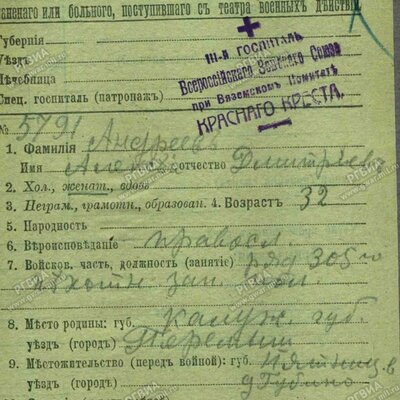 раненаго или больного, поступившаго съ театра военныхъ дѣйствій
Губернія
Уѣздъ
Лечебница
Спец. госпиталь (патронажъ)
III-й ГОСПИТАЛЬ
Всероссійскаго Земскаго Союза
при Вяземскомъ Комитетѣ
КРАСНАГО КРЕСТА.
№ 5791
1. Фамилія Андреевъ
Имя Алексѣй Отчество Дмитріевъ
2. Хол., женат., вдовъ
3. Неграм., грамотн., образован. 4. Возрастъ 32
5. Народность
6. Вѣроисповѣданіе правосл.
7. Войсков. часть, должность (занятіе) ряд 305го
пѣхотн зап. пол.
8. Мѣсто родины: губ. Калуж. губ.
уѣздъ (городъ)
9. Мѣстожительство (передъ войной): губ.
уѣздъ (городъ) д Губино
РГВИА